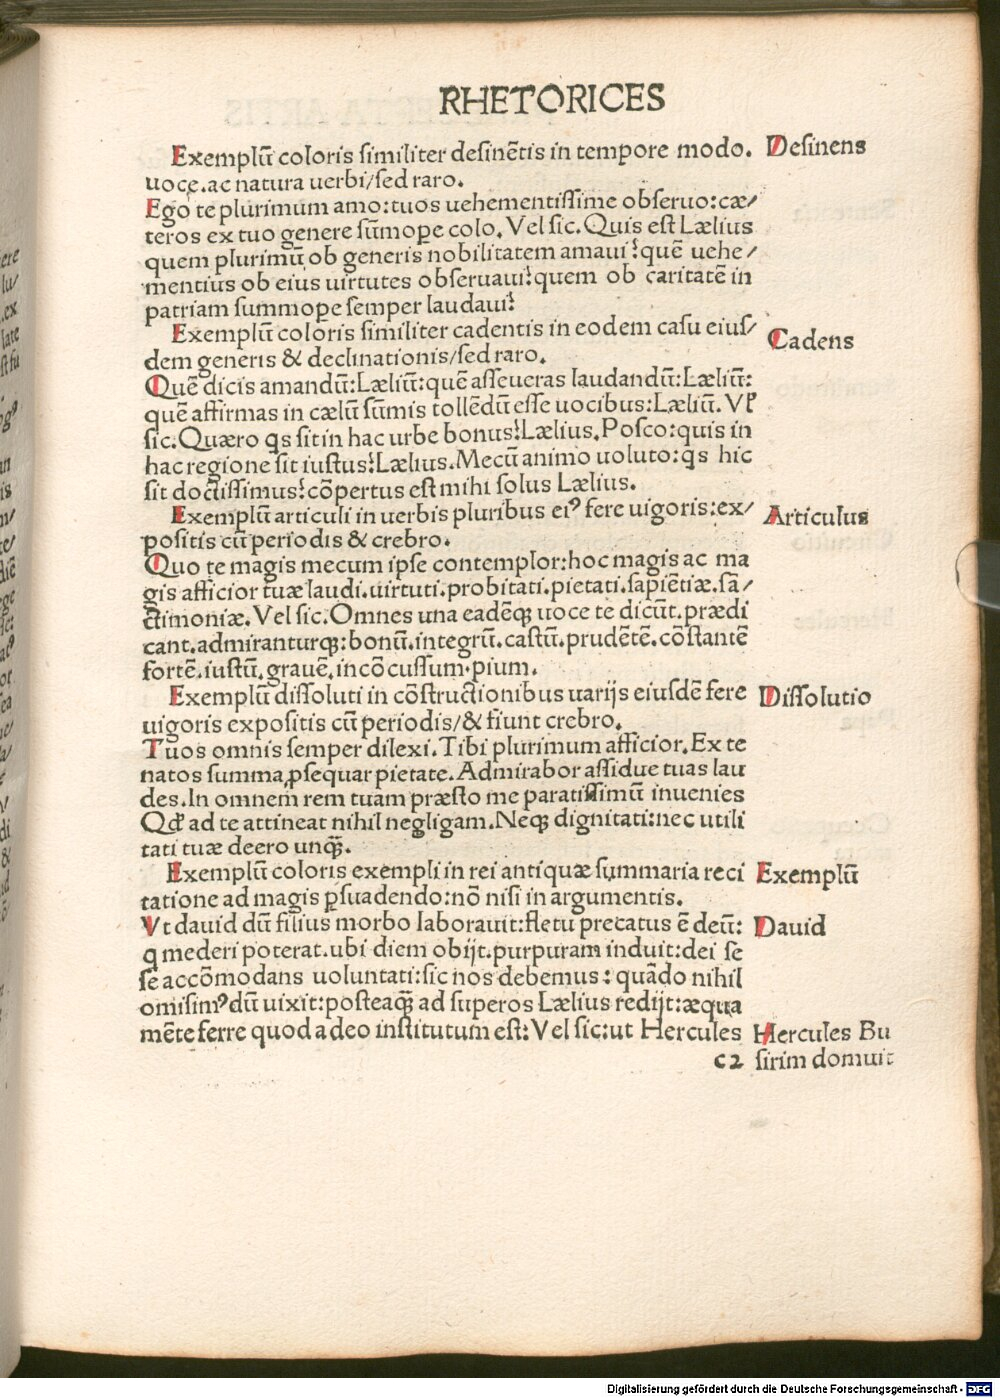 RHETORICES
Exemplū coloris ſimiliter deſinētis in tempore modo. Deſinens
uocę.ac natura uerbi/ſed raro.
Ego te plurimum amo:tuos uehementiſſime obſeruo:cæ/
teros ex tuo genere ſūmoꝑe colo. Vel ſic. Quis eſt Lælius
quem plurimū ob generis nobilitatem amaui? quē uehe/
mentius ob eius uirtutes obſeruaui? quem ob caritatē in
patriam ſummoꝑe ſemper laudaui?
Exemplū coloris ſimiliter cadentis in eodem caſu eiuſ/ Cadens
dem generis & declinationis/ſed raro.
Quē dicis amandū:Læliū:quē aſſeueras laudandū:Læliū:
quē affirmas in cælū ſūmis tollēdū eſſe uocibus:Læliū. Vł
ſic.Quæro qs ſit in hac urbe bonus? Lælius. Poſco:quis in
hac regione ſit iuſtus? Lælius.Mecū animo uoluto:qs hic
ſit doctiſſimus? cōpertus eſt mihi ſolus Lælius.
Exemplū articuli in uerbis pluribus eiꝰ fere uigoris:ex/ Articulus
poſitis cū periodis & crebro.
Quo te magis mecum ipſe contemplor:hoc magis ac ma
gis afficior tuæ laudi.uirtuti.probitati.pietati.ſapiētiæ.ſā/
ctimoniæ. Vel ſic. Omnes una eadēqꝫ uoce te dicūt.prædi
cant.admiranturqꝫ:bonū.integrū.caſtū.prudētē.cōſtantē
fortē.iuſtū.grauē.incōcuſſum.pium.
Exemplū diſſoluti in cōſtructionibus uarijs eiuſdē fere Diſſolutio
uigoris expoſitis cū periodis/& fiunt crebro.
Tuos omnis ſemper dilexi. Tibi plurimum afficior. Ex te
natos ſumma ꝓſequar pietate. Admirabor aſſidue tuas lau
des.In omnem rem tuam præſto me paratiſſimū inuenies
Qđ ad te attineat nihil negligam. Neqꝫ dignitati:nec utili
tati tuæ deero unq̄ꝫ.
Exemplū coloris exempli in rei antiquæ ſummaria reci Exemplū
tatione ad magis ꝑſuadendo:nō niſi in argumentis.
Vt dauid dū filius morbo laborauit:fletu precatus ē deū: Dauid
q mederi poterat.ubi diem obijt.purpuram induit:dei ſe
ſe accōmodans uoluntati:ſic nos debemus: quādo nihil
omiſimꝰ dū uixit:poſteaq̄ꝫ ad ſuperos Lælius redijt:æqua
mēte ferre quod a deo inſtitutum eſt: Vel ſic:ut Hercules Hercules Bu
c2 ſirim domuit
Digitalisierung gefördert durch die Deutsche Forschungsgemeinschaft - DFG